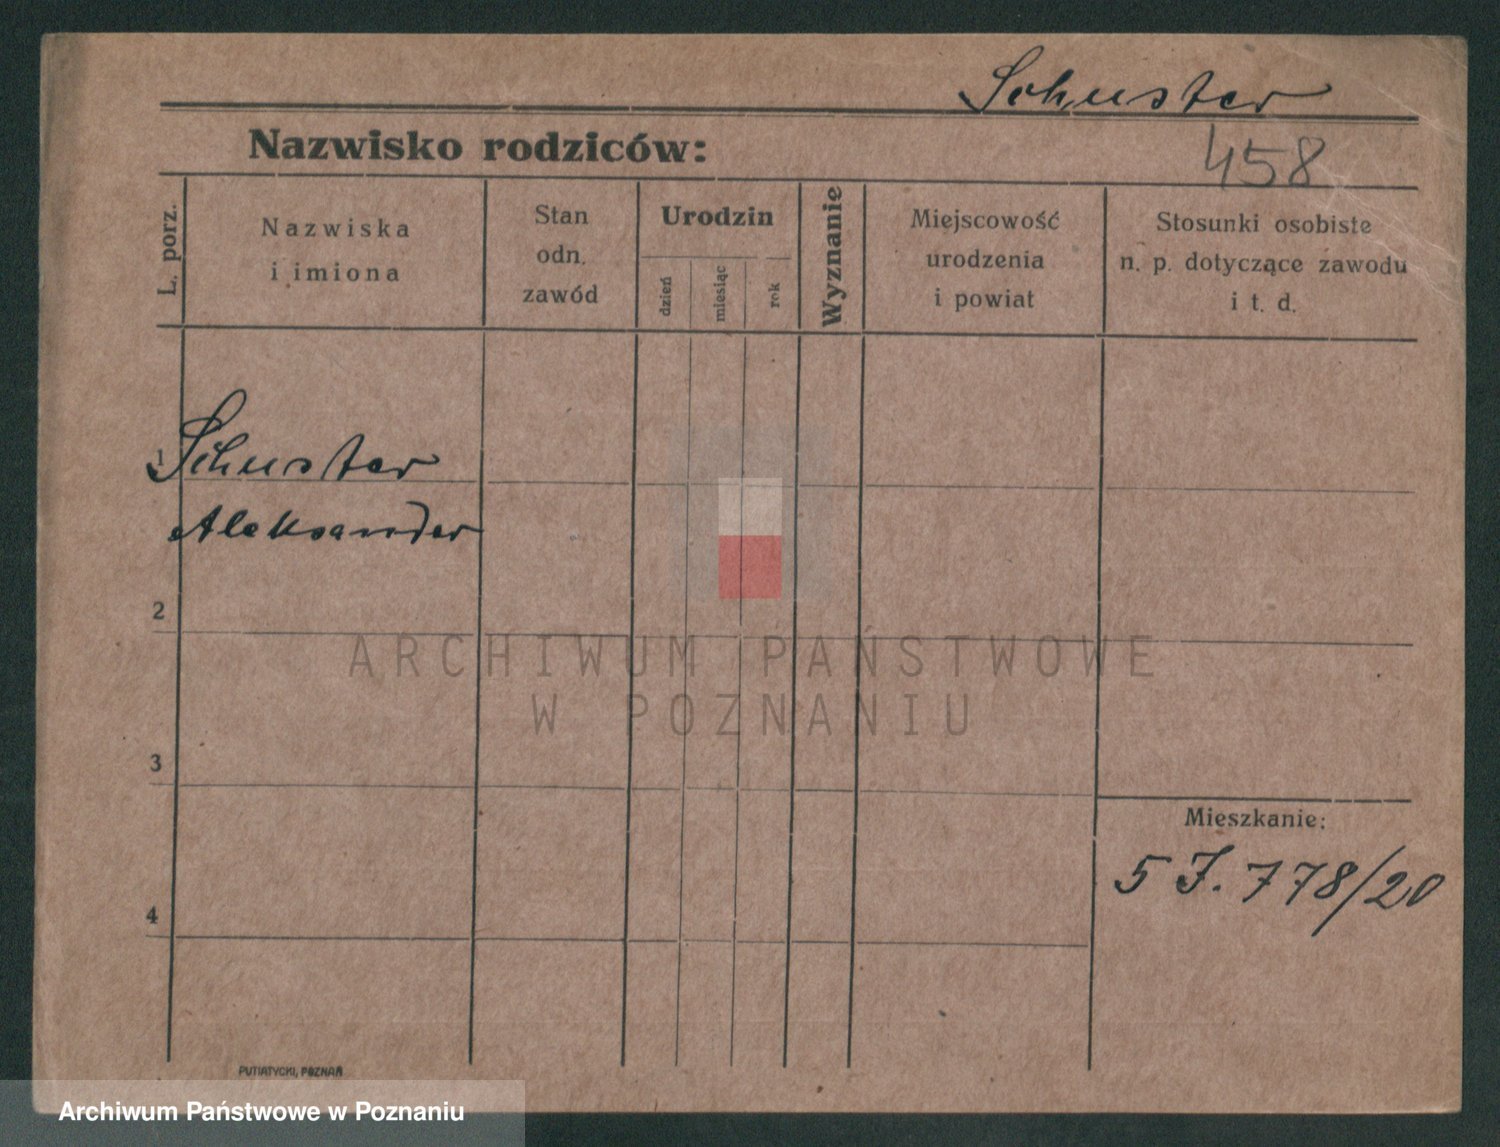 Schuster
Nazwisko rodziców:
458
L. porz.
Nazwiska
i imiona
Stan
odn.
zawód
Urodzin
dzień
miesiąc
rok
Wyznanie
Miejscowość
urodzenia
i powiat
Stosunki osobiste
n. p. dotyczące zawodu
i t. d.
1
Schuster
Aleksander
2
ARCHIWUM PAŃSTWOWE
W POZNANIU
3
Mieszkanie:
5 J. 778/20
4
PUTIATYCKI, POZNAŃ
Archiwum Państwowe w Poznaniu